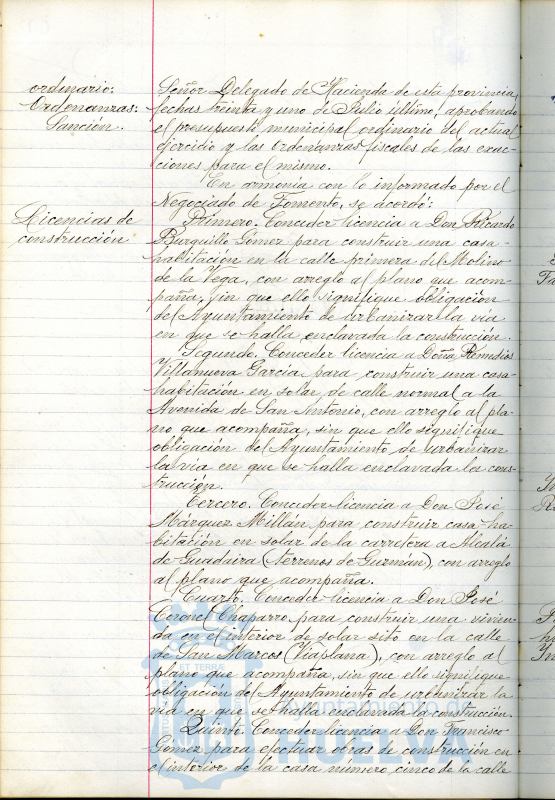 ordinario:
Ordenanzas:
Sanción.
Señor Delegado de Hacienda de esta provincia,
fechas treinta y uno de Julio último, aprobando
el presupuesto municipal ordinario del actual
ejercicio y las ordenanzas fiscales de las exac-
ciones para el mismo.
En armonía con lo informado por el
Negociado de Fomento, se acordó:
Licencias de
construcción
Primero. Conceder licencia a Don Ricardo
Burguillo Gómez para construir una casa-
habitación en la calle primera del Molino
de la Vega, con arreglo al plano que acom-
paña, sin que ello signifique obligación
del Ayuntamiento de urbanizar la vía
en que se halla enclavada la construcción.
Segundo. Conceder licencia a Doña Remedios
Villanueva García para construir una casa-
habitación en solar de calle normal a la
Avenida de San Antonio, con arreglo al pla-
no que acompaña, sin que ello signifique
obligación del Ayuntamiento de urbanizar
la vía en que se halla enclavada la cons-
trucción.
Tercero. Conceder licencia a Don José
Márquez Millán para construir casa-ha-
bitación en solar de la carretera a Alcalá
de Guadaira (terrenos de Guzmán), con arreglo
al plano que acompaña.
Cuarto. Conceder licencia a Don José
Coronel Chaparro para construir una vivien-
da en el interior de solar sito en la calle
de San Marcos (Viaplana), con arreglo al
plano que acompaña, sin que ello signifique
obligación del Ayuntamiento de urbanizar la
vía en que se halla enclavada la construcción.
Quinto. Conceder licencia a Don Francisco
Gómez para efectuar obras de construcción en
el interior de la casa número cinco de la calle
ET TERRÆ
Ayuntamiento de
HUELVA